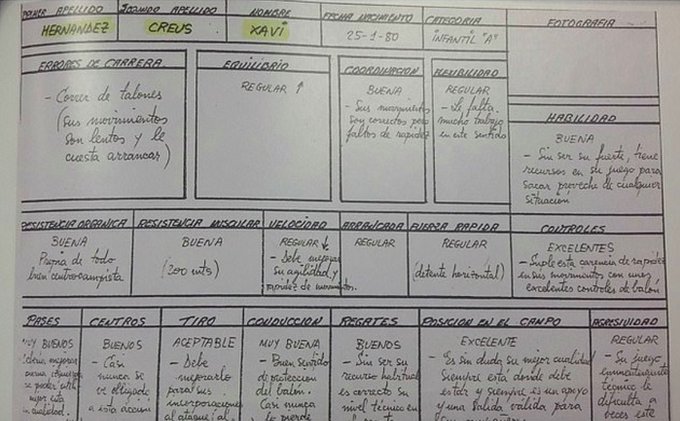 PRIMER APELLIDO
HERNANDEZ
SEGUNDO APELLIDO
CREUS
NOMBRE
XAVI
FECHA NACIMIENTO
25-1-80
CATEGORIA
INFANTIL "A"
FOTOGRAFIA
ERRORES DE CARRERA
- Correr de talones
(sus movimientos
son lentos y le
cuesta arrancar)
EQUILIBRIO
REGULAR ↑
COORDINACION
BUENA
- Sus movimientos
son correctos pero
faltos de rapidez
FLEXIBILIDAD
REGULAR
- Le falta
mucho trabajo
en este sentido
HABILIDAD
BUENA
- Sin ser su fuerte, tiene
recursos en su juego para
sacar provecho de cualquier
situación
RESISTENCIA ORGANICA
BUENA
Propia de todo
buen centrocampista
RESISTENCIA MUSCULAR
BUENA
(200 mts)
VELOCIDAD
REGULAR ↓
- Debe mejorar
su agilidad y
rapidez de movimientos.
ARRANCADA
REGULAR
FUERZA RAPIDA
REGULAR
(detente horizontal)
CONTROLES
EXCELENTES
- Suple esta carencia de rapidez
en sus movimientos con unos
excelentes controles de balón.
PASES
MUY BUENOS
mejorar
CENTROS
BUENOS
- Casi
nunca se
ve obligado
a esta acción
TIRO
ACEPTABLE
- Debe
mejorarlo
para sus
incorporaciones
al ataque; al
CONDUCCION
MUY BUENA
- Buen sentido
de protección
del balón.
Casi nunca
le pierde
REGATES
BUENOS
- Sin ser su
recurso habitual
es correcto su
nivel técnico en
POSICION EN EL CAMPO
EXCELENTE
- Es sin duda su mejor cualidad
Siempre está donde debe
estar y siempre es un apoyo
y una salida válida para
AGRESIVIDAD
REGULAR
- Su juego
eminentemente
técnico le
dificulta a
veces este